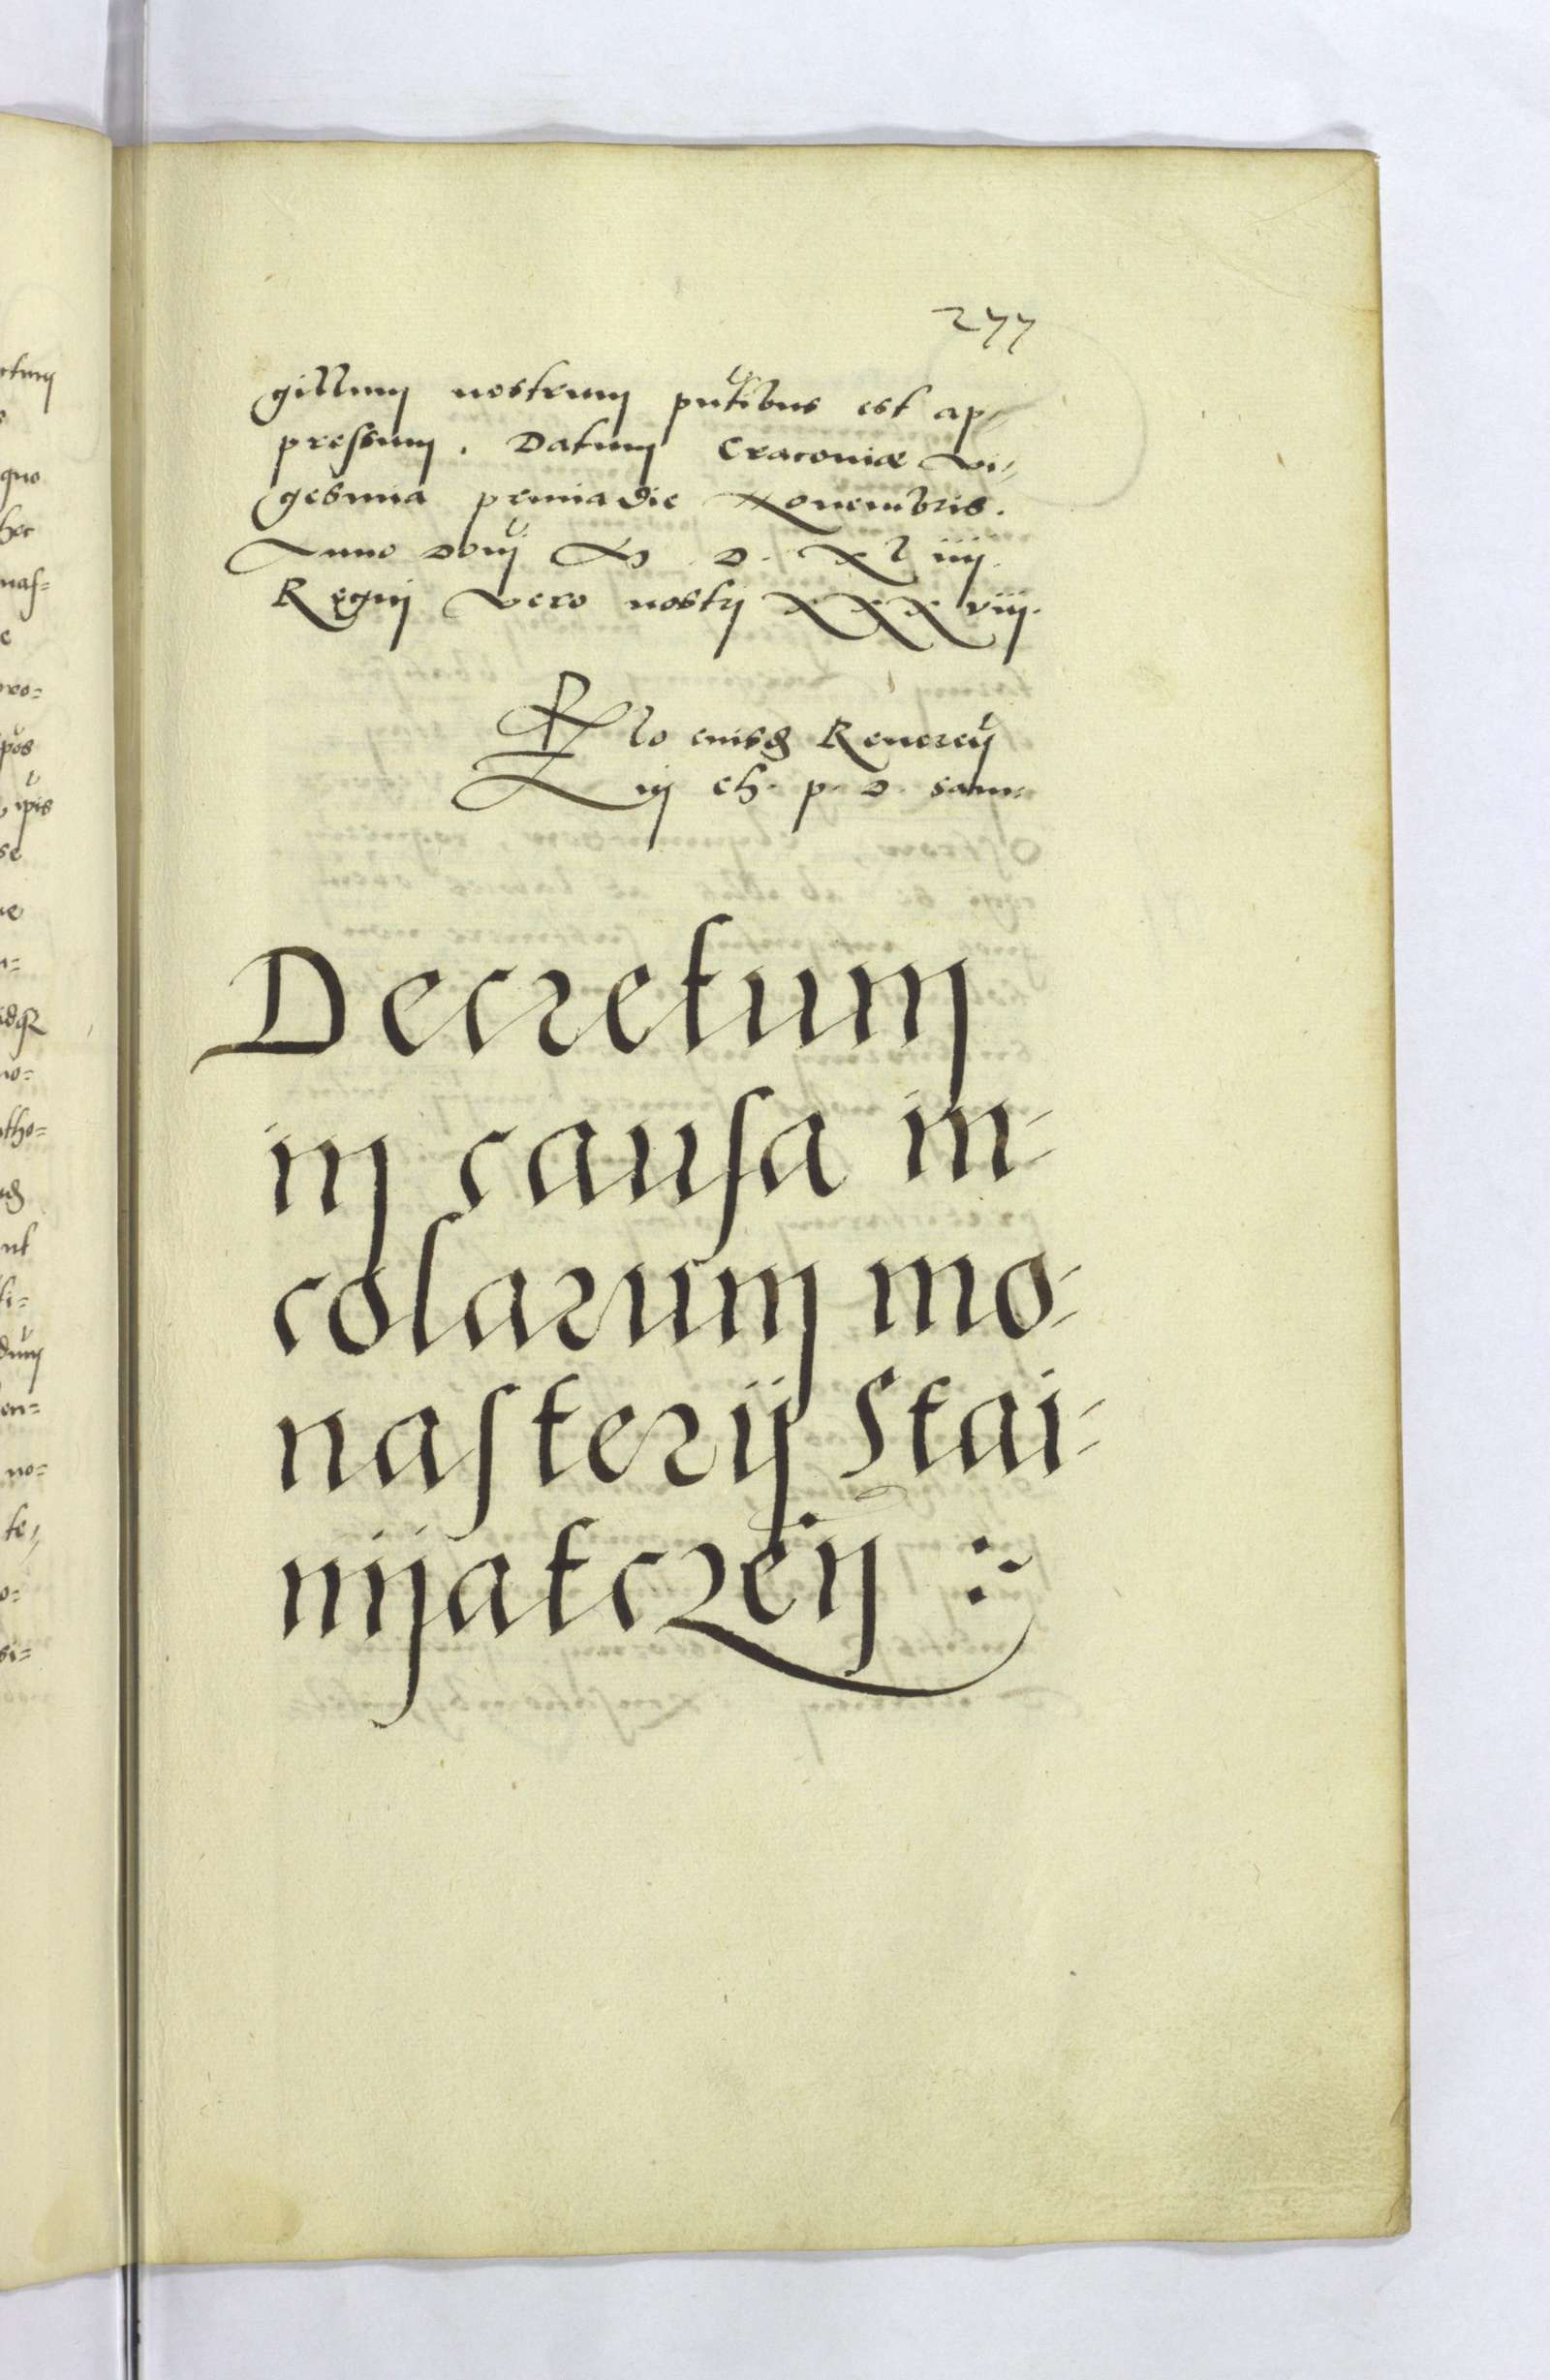 277
gillum nostrum pntibus est ap-
pressum. Datum Cracoviæ vi-
gesima prima die Novembris.
Anno Domi M D. XLiiij.
Regni vero nostri XXXviij.
Rlo eiusdem Reveren
in ch. p. D. Sam:
Decretum
in causa in-
colarum mo-
nasterij Stai-
nijatczeij